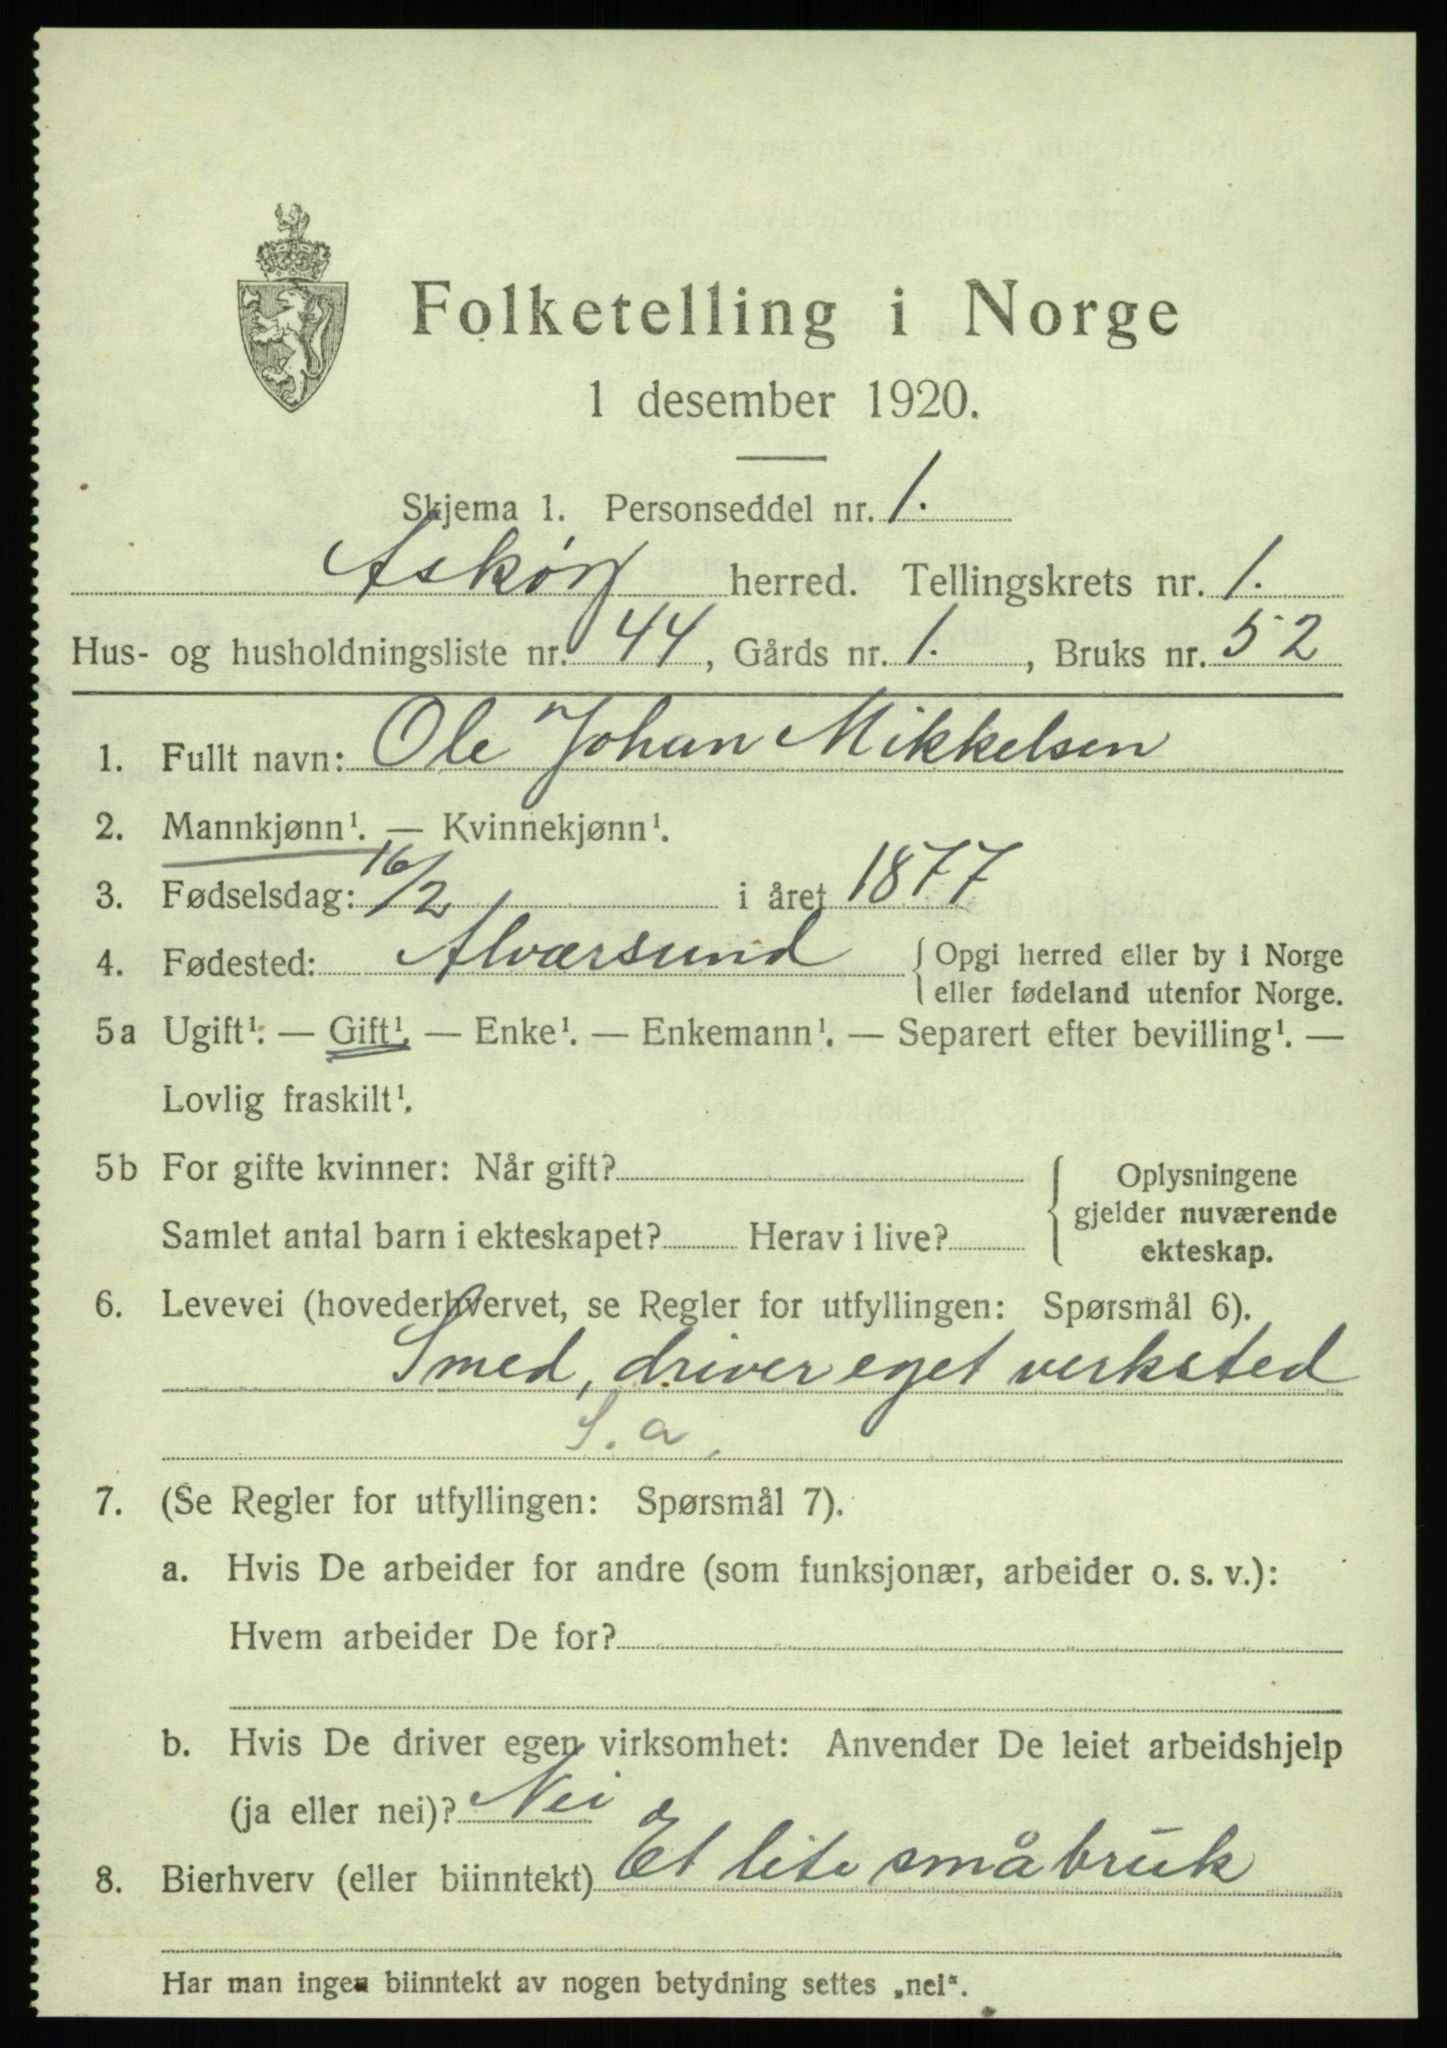 Folketelling i Norge
1 desember 1920.
Skjema 1. Personseddel nr. 1.
Askøy herred. Tellingskrets nr. 1.
Hus- og husholdningsliste nr. 44, Gårds nr. 1., Bruks nr. 52
1. Fullt navn: Ole Johan Mikkelsen
2. Mannkjønn¹. — Kvinnekjønn¹.
3. Fødselsdag: 16/2 i året 1877
4. Fødested: Alværsund { Opgi herred eller by i Norge
eller fødeland utenfor Norge.
5a Ugift¹. — Gift¹. — Enke¹. — Enkemann¹. — Separert efter bevilling¹. —
Lovlig fraskilt¹.
5b For gifte kvinner: Når gift? { Oplysningene
gjelder nuværende
Samlet antal barn i ekteskapet? Herav i live?
ekteskap.
6. Levevei (hovederhvervet, se Regler for utfyllingen: Spørsmål 6).
Smed, driver eget verksted
S. a.
7. (Se Regler for utfyllingen: Spørsmål 7).
a. Hvis De arbeider for andre (som funksjonær, arbeider o. s. v.):
Hvem arbeider De for?
b. Hvis De driver egen virksomhet: Anvender De leiet arbeidshjelp
(ja eller nei)? Nei
8. Bierhverv (eller biinntekt) Et lite småbruk
Har man ingen biinntekt av nogen betydning settes „nei“.